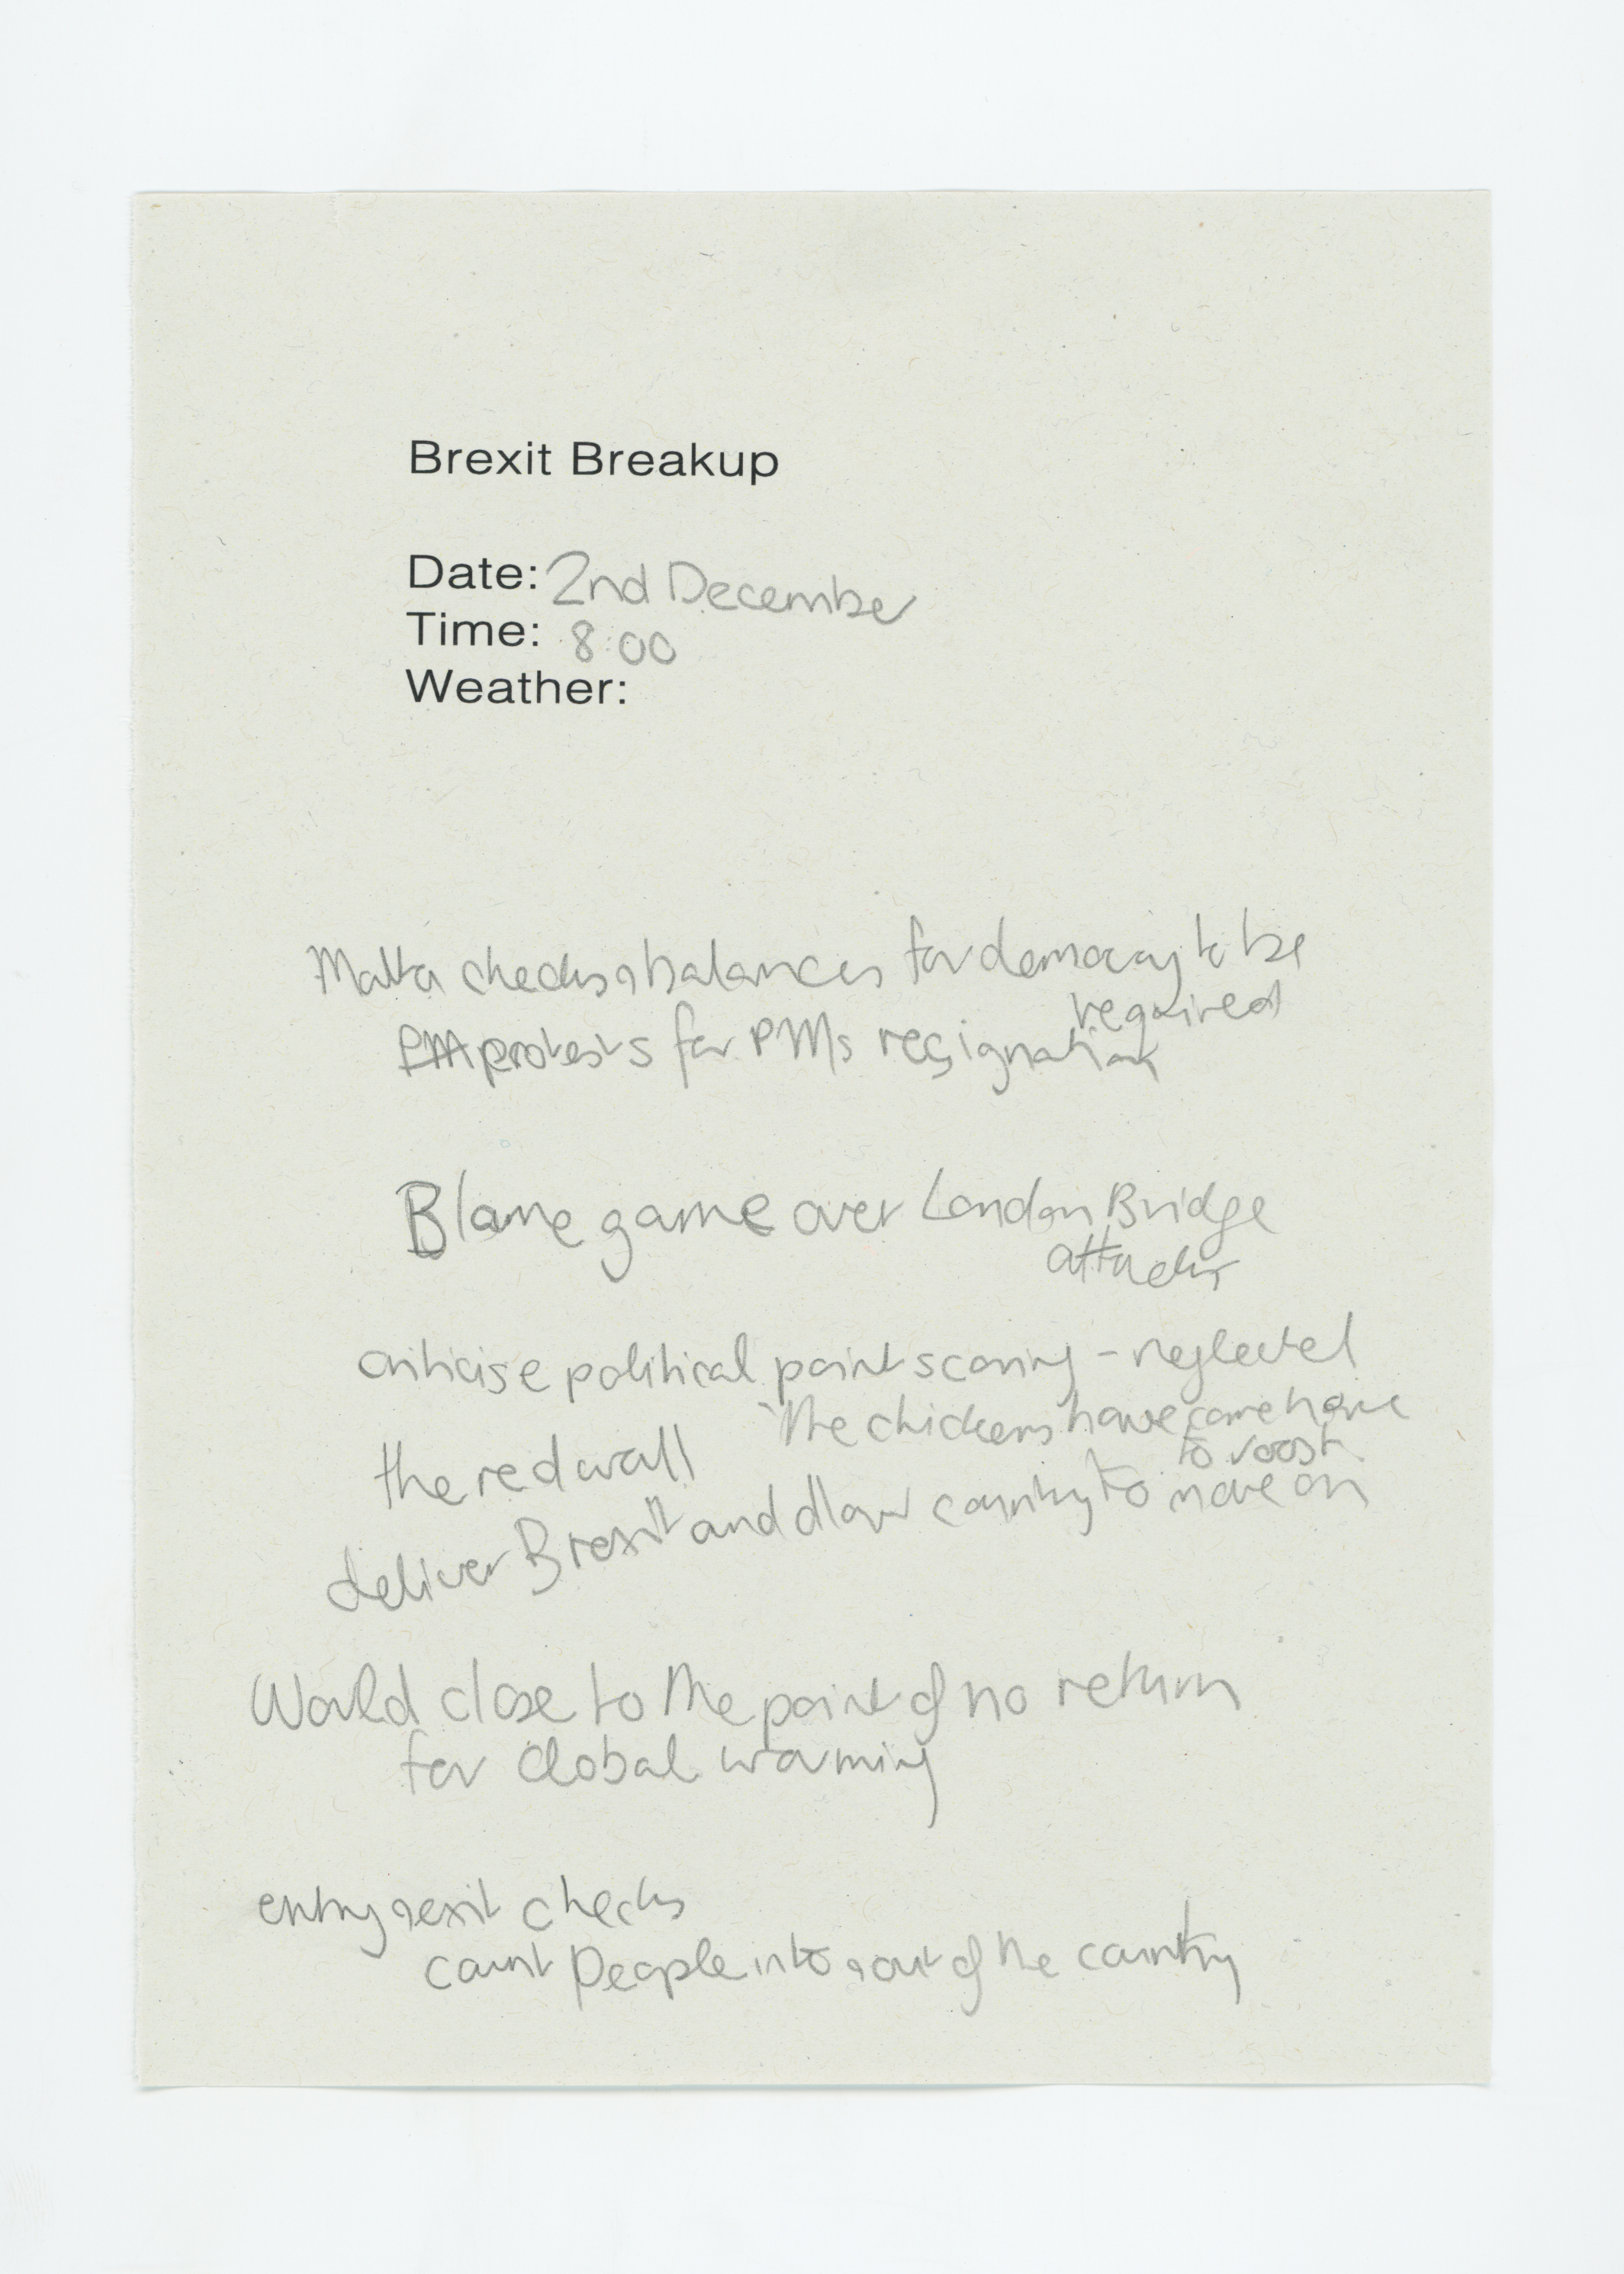 Brexit Breakup
Date: 2nd December
Time: 8:00
Weather:
Malta checks & balances for democracy to be
required
PM protests for PMs resignation
Blame game over London Bridge
attacks
criticise political point scoring - neglected
the red wall "the chickens have come home
to roost
deliver Brexit and allow country to move on
World close to the point of no return
for Global warming
entry & exit checks
count people into & out of the country